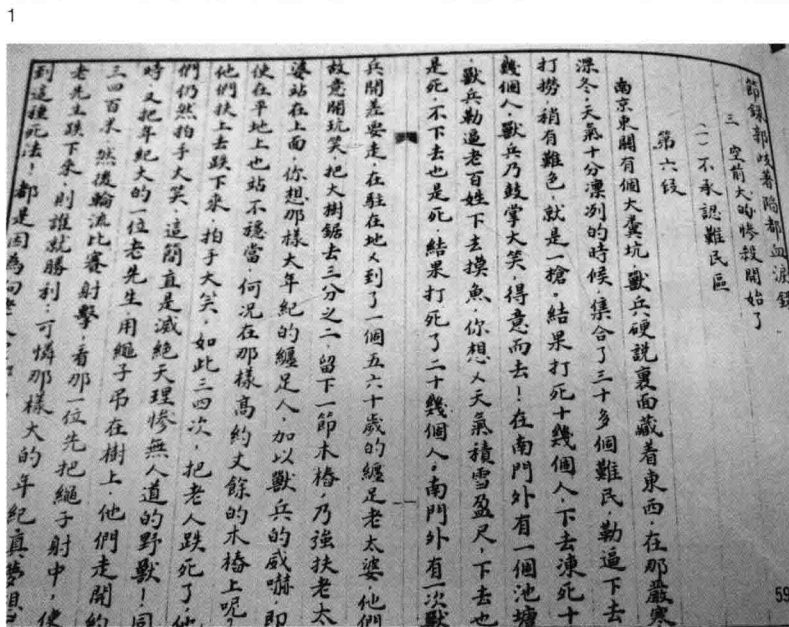 1
節錄郭岐著陷都血淚錄
三 空前大的慘殺開始了
(一)不承認難民區
第六段
南京東關有個大糞坑，獸兵硬說裏面藏着東西，在那嚴寒
深冬，天氣十分凜冽的時候，集合了三十多個難民，勒逼下去
打撈，稍有難色，就是一搶，結果打死十幾個人，下去凍死十
幾個人，獸兵乃鼓掌大笑，得意而去！在南門外有一個池塘
，獸兵勒逼老百姓下去摸魚，你想，天氣積雪盈尺，下去也
是死，不下去也是死，結果打死了二十幾個人，南門外有一次獸
兵開差要走，在駐在地又到了一個五六十歲的纏足老太婆，他們
故意開玩笑，把大樹鋸去三分之二，留下一節木樁，乃強扶老太
婆站在上面，你想那樣大年紀的纏足人，加以獸兵的威嚇，即
使在平地上也站不穩當，何況在那樣高約丈餘的木樁上呢？
他們扶上去跌下來，拍手大笑，如此三四次，把老人跌死了，他
們仍然拍手大笑，這簡直是滅絕天理慘無人道的野獸！同
時，又把年紀大的一位老先生，用繩子吊在樹上，他們走開約
三四百米，然後輪流比賽射擊，看那一位先把繩子射中，使
老先生跌下來，則誰就勝利，可憐那樣大的年紀真夢想
到這種死法！都是因為向
59